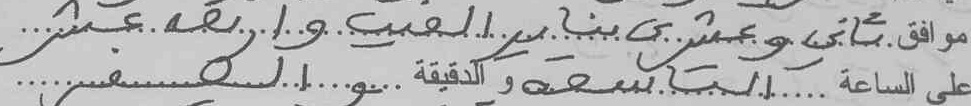 موافق ثاني وعشرين يناير ألفين وأربعة عشر
على الساعة التاسعة والدقيقة والصفر